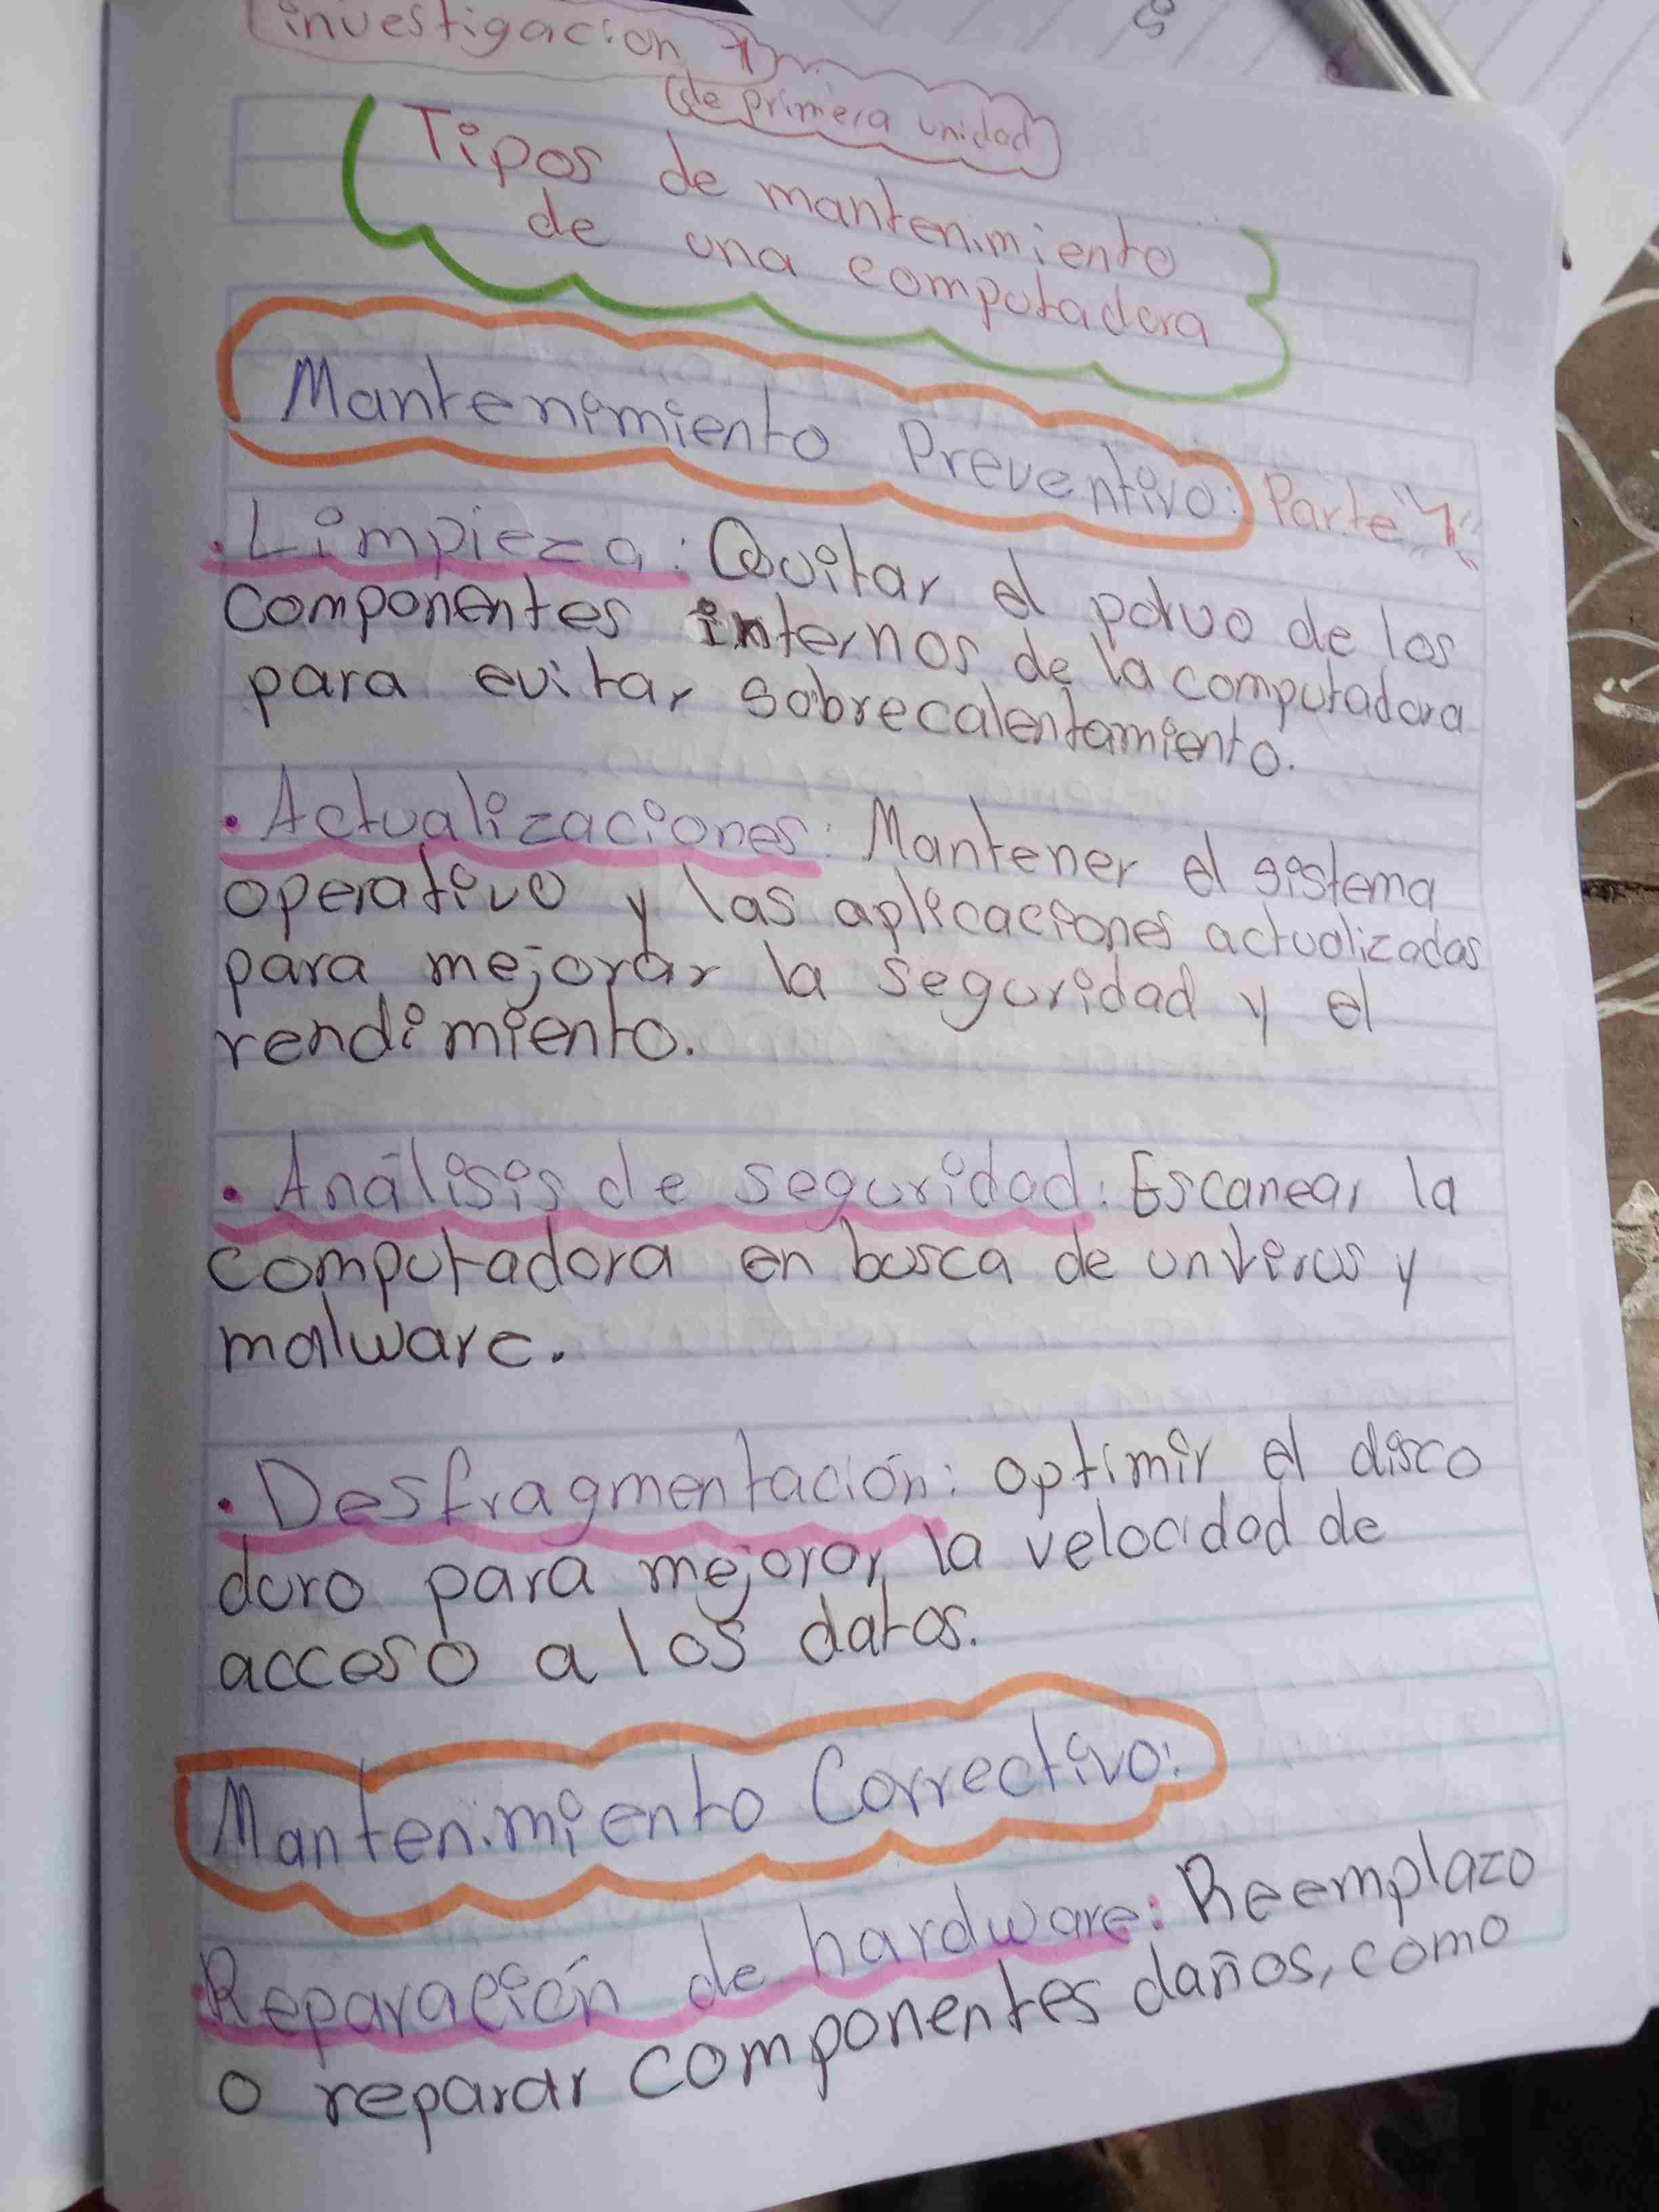 investigacion
de primera unidad
Tipos de mantenimiento
de una computadora
Mantenimiento Preventivo: Parte "1"
• Limpieza: Quitar el polvo de los
componentes internos de la computadora
para evitar sobrecalentamiento.
• Actualizaciones: Mantener el sistema
operativo y las aplicaciones actualizadas
para mejorar la seguridad y el
rendimiento.
• Análisis de seguridad: Escanear la
computadora en busca de un virus y
malware.
• Desfragmentación: optimir el disco
duro para mejorar la velocidad de
acceso a los datos.
Mantenimiento Correctivo:
Reparación de hardware: Reemplazo
o reparar componentes daños, como